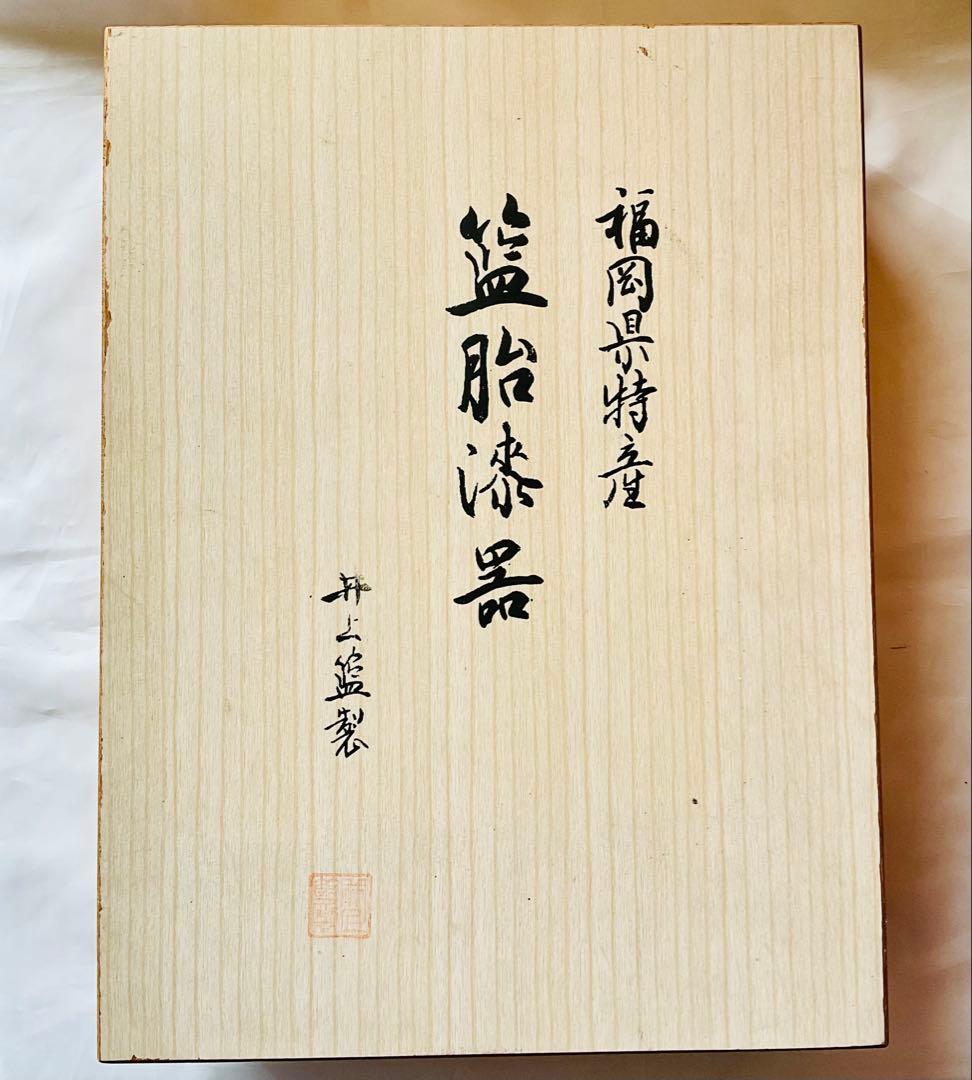 福岡県特産
籃胎漆器
井上籃製